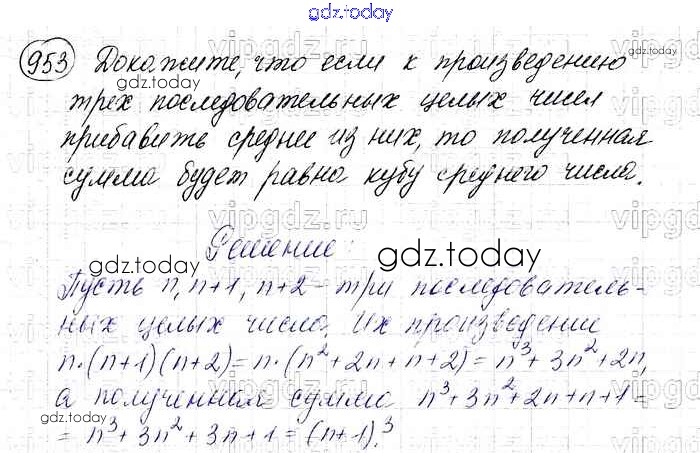 gdz.today
953 Докажите, что если к произведению
gdz.today
трех последовательных целых чисел
прибавить среднее из них, то полученная
сумма будет равна кубу среднего числа.
Решение:
gdz.today
Пусть n, n+1, n+2 - три последователь-
ных целых числа. Их произведение
n·(n+1)(n+2)= n·(n²+2n+n+2)= n³+3n²+2n,
а полученная сумма n³+3n²+2n+n+1=
= n³+3n²+3n+1 = (n+1)³.
gdz.today